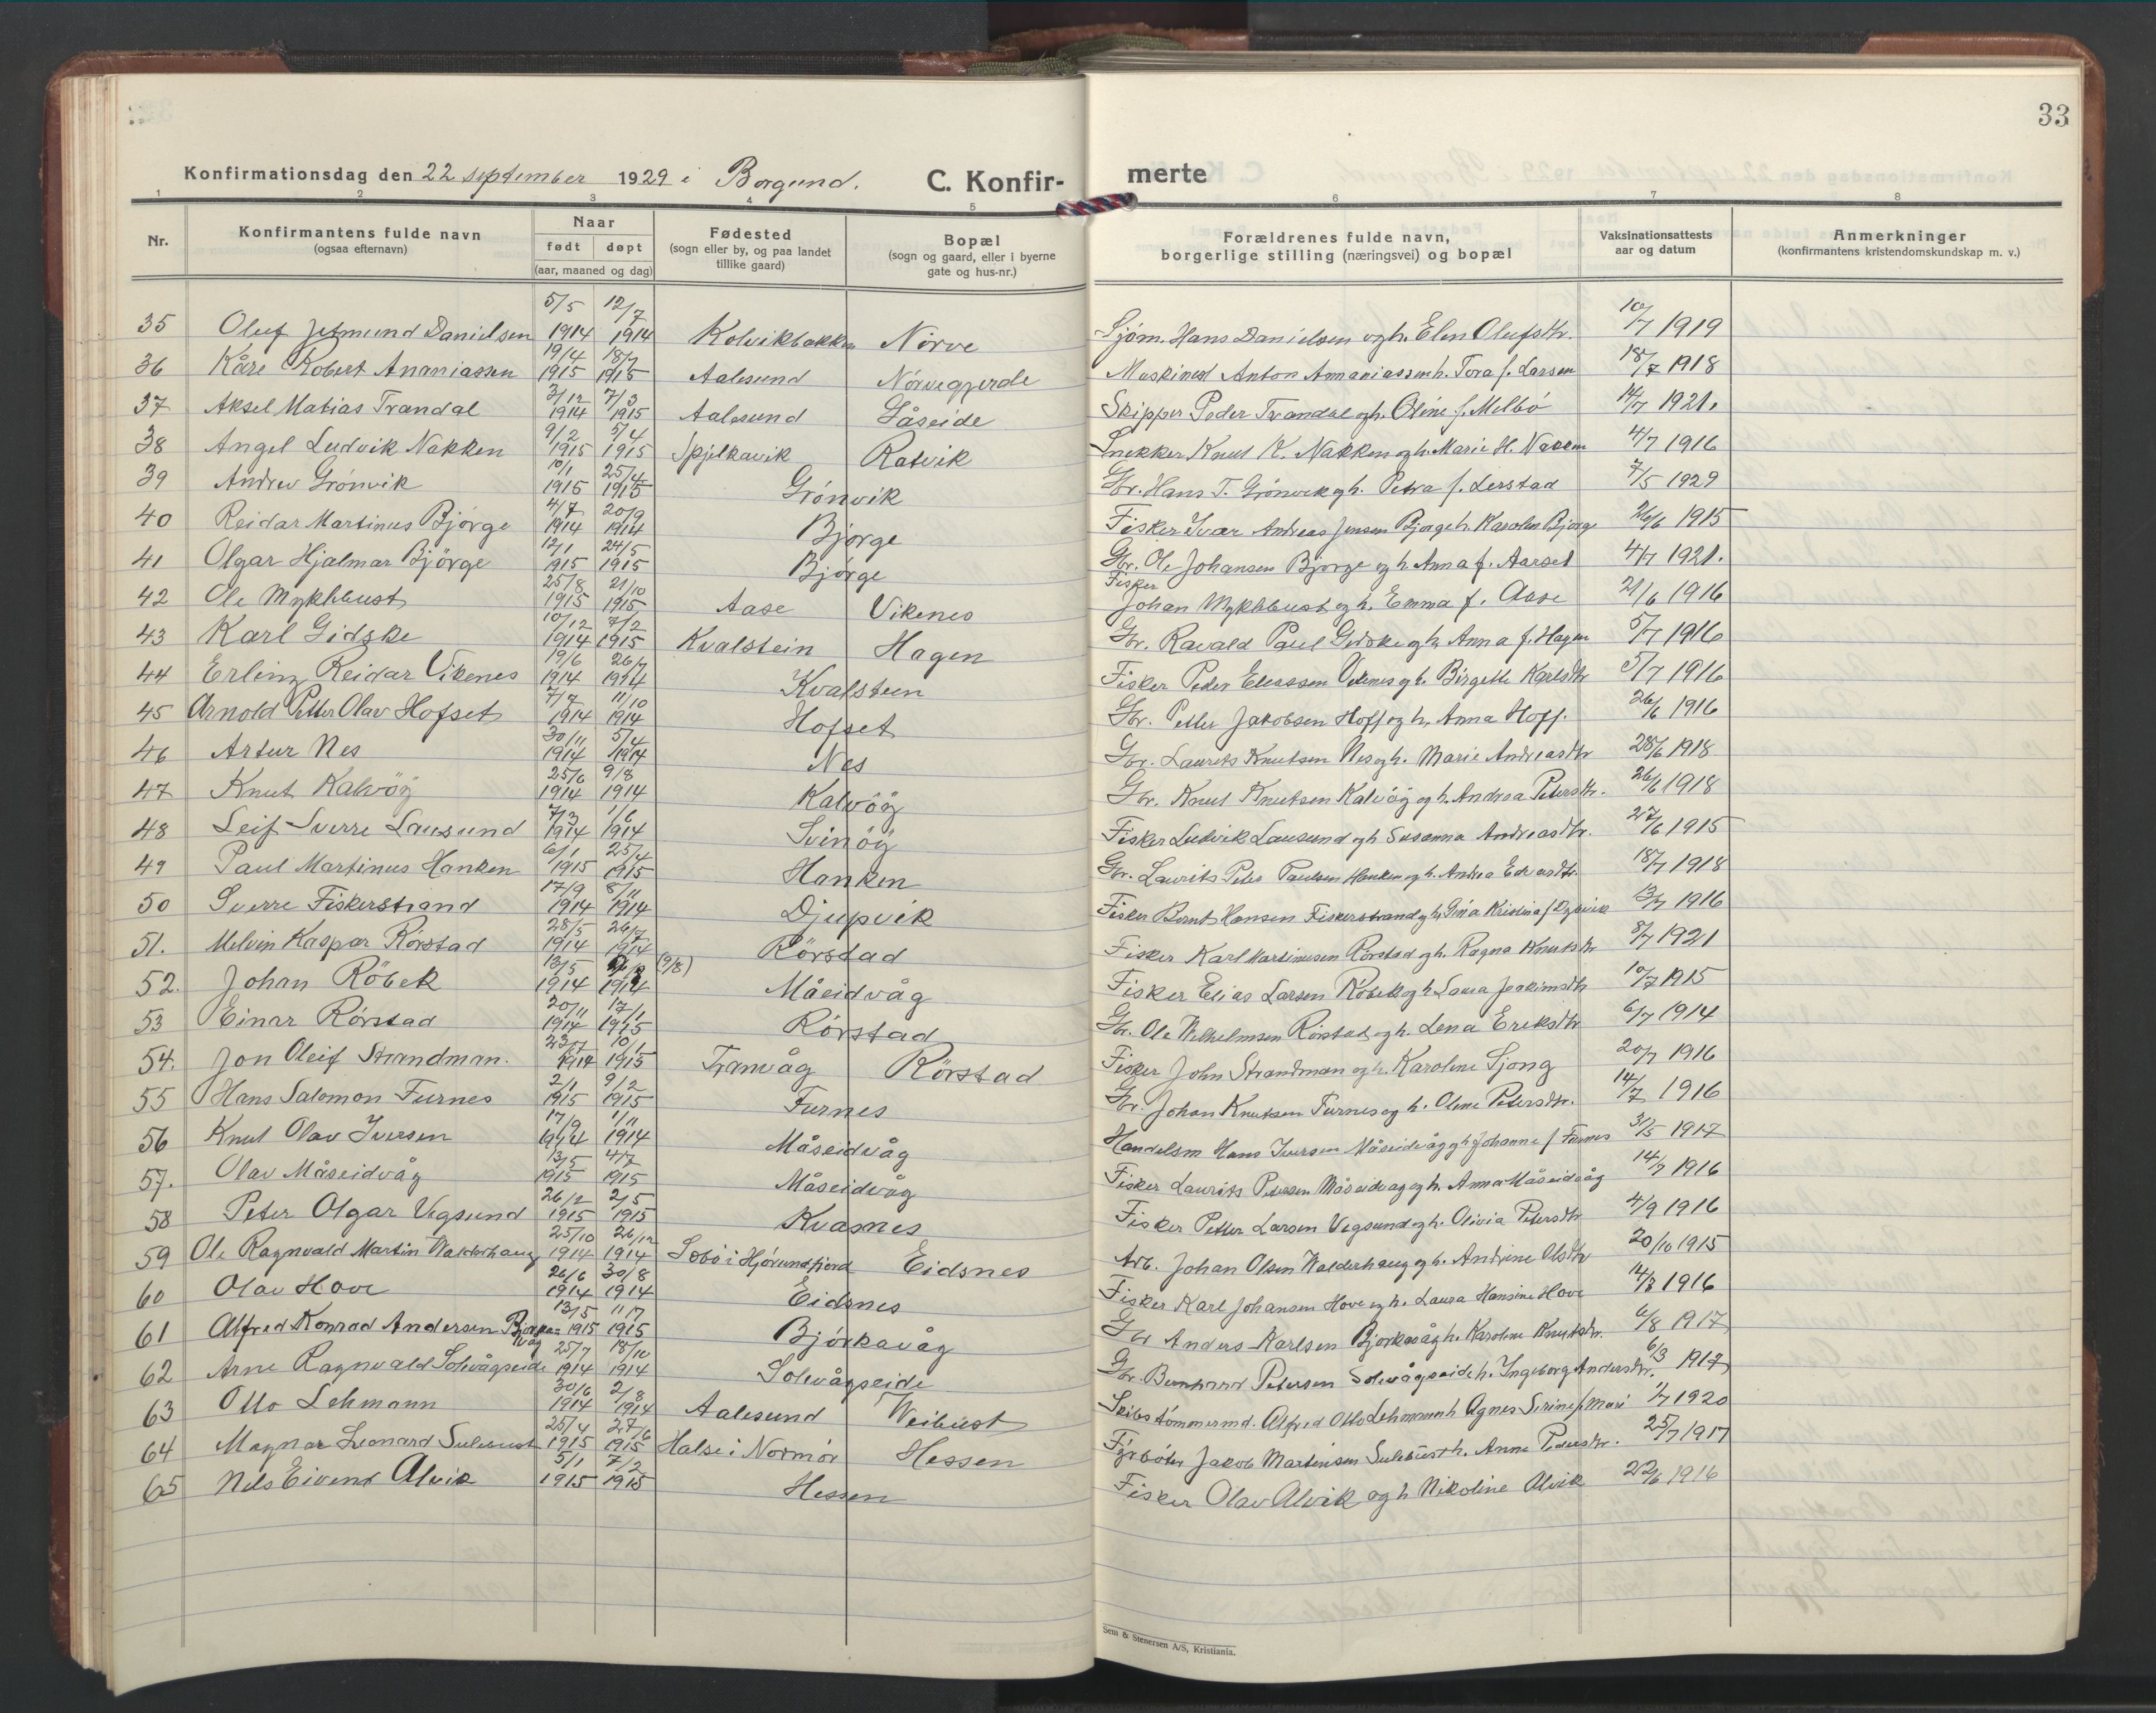 33
Konfirmationsdag den 22 september 1929 i Borgund. C. Konfirmerte
1 2 3 4 5 6 7 8
Nr. Konfirmantens fulde navn (ogsaa efternavn) Naar født døpt (aar, maaned og dag) Fødested (sogn eller by, og paa landet tillike gaard) Bopæl (sogn og gaard, eller i byerne gate og hus-nr.) Forældrenes fulde navn, borgerlige stilling (næringsvei) og bopæl Vaksinationsattests aar og datum Anmerkninger (konfirmantens kristendomskundskap m. v.)
35 Oluf Jetmund Danielsen 5/5 1914 12/7 1914 Kolvikbakken Nörve Sjøm. Hans Danielsen og h. Elen Olufsdtr. 10/7 1919
36 Kåre Robert Ananiassen 19/4 1915 18/7 1915 Aalesund Nörvegjerde Maskinest Anton Annaniassen h. Tora f. Larsen 18/7 1918
37 Aksel Matias Trandal 3/12 1914 7/3 1915 Aalesund Gåseide Skipper Peder Trandal og h. Oline f. Melbö 14/7 1921.
38 Angel Ludvik Nakken 9/2 1915 5/4 1915 Spjelkavik Ratvik Snekker Knut K. Nakken og h. Marie H. Nakken 4/7 1916
39 Andrew Grönvik 10/1 1915 25/4 1915 Grönvik Gbr. Hans T. Grönvik og h. Petra f. Lerstad 7/5 1929
40 Reidar Martinus Björge 4/7 1914 20/9 1914 Björge Fisker Ivar Andreas Jensen Björge h. Karolen Björge 26/6 1915
41 Olgar Hjalmar Björge 12/1 1915 24/5 1915 Björge Gbr. Ole Johansen Björge og h. Anna f. Aarset 4/7 1921.
42 Ole Myklebust 25/8 1915 21/10 1915 Aase Vikenes Fisker Johan Myklebust og h. Emma f. Aase 21/6 1916
43 Karl Gidske 10/12 1914 7/2 1915 Kvalstein Hagen Gbr. Ravald Paul Gidske og h. Anna f. Hagen 5/7 1916
44 Erling Reidar Vikenes 19/6 1914 26/7 1914 Kvalsteen Fisker Peder Eliassen Vikenes og h. Birgitte Karlsdtr 5/7 1916
45 Arnold Petter Olav Hofset 7/7 1914 11/10 1914 Hofset Gbr. Petter Jakobsen Hoff og h. Anna Hoff. 26/6 1916
46 Artur Nes 30/11 1914 5/4 1914 Nes Gbr. Laurits Knutsen Nes og h. Marie Andreasdtr 28/6 1918
47 Knut Kalvöy 25/6 1914 9/8 1914 Kalvöy Gbr. Knut Knutsen Kalvöy og h. Andrea Petersdtr. 26/6 1918
48 Leif Sverre Lausund 7/3 1914 1/6 1914 Svinöy Fisker Ludvik Lausund og h Susanna Andreasdtr. 27/6 1915
49 Paul Martinus Hanken 6/1 1915 25/4 1915 Hanken Gbr. Laurits Peter Paulsen Hanken og h. Andrea Edvardsdtr. 18/7 1918
50 Sverre Fiskerstrand 17/9 1914 8/11 1914 Djupvik Fisker Bernt Hansen Fiskerstrand og h. Gina Kristina f Djupvik 13/7 1916
51. Melvin Kaspar Rörstad 28/5 1914 26/7 1914 Rörstad Fisker Karl Martinusen Rörstad og h. Ragna Knutsdtr 8/7 1921
52. Johan Röbek 13/5 1914 1914 (9/8) Måeidvåg Fisker Elias Larsen Röbek og h Laura Joakimsdtr 10/7 1915
53 Einar Rörstad 20/11 1914 17/1 1915 Rörstad Gbr. Ole Wilhelmsen Rörstad og h. Lena Eriksdtr 6/7 1914
54. Jon Oleif Strandman. 23/7 1914 10/1 1915 Tranvåg Rörstad Fisker John Strandman og h. Karoline Sjong 20/7 1916
55 Hans Salomon Furnes 2/1 1915 9/2 1915 Furnes Gbr. Johan Knutsen Furnes og h. Oline Petersdtr. 14/7 1916
56 Knut Olav Iversen 17/9 1914 1/11 1914 Måseidvåg Handelsm Hans Iversen Måseidvåg og h Johanne f Furnes 31/5 1917
57. Olav Måseidvåg 13/5 1915 4/7 1915 Måseidvåg Fisker Laurits Petersen Måseidvåg og h. Anna Måseidvåg 14/7 1916
58 Peter Olgar Vegsund 26/2 1915 2/5 1915 Kvasnes Fisker Petter Larsen Vegsund og h. Olivia Petersdtr 4/9 1916
59 Ole Ragnvald Martin Walderhaug 25/10 1914 26/12 1914 Sobö i Hjörundfjord Eidsnes Arb. Johan Olsen Walderhaug og h. Andrine Olsdtr 20/10 1915
60 Olav Hove 26/6 1914 30/8 1914 Eidsnes Fisker Karl Johansen Hove og h. Laura Hansine Hove 14/8 1916
61 Alfred Konrad Andersen Bjørkavåg 13/5 1915 11/7 1915 Björkavåg Gbr Anders Karlsen Bjorkavåg h. Karoline Knutsdtr. 6/8 1917
62 Arne Ragnvald Solevågseide 25/7 1914 18/10 1914 Solevågseide Gbr. Bernhard Petersen Solevågseide h. Ingeborg Andersdtr. 6/3 1917
63 Otto Lehmann 30/6 1914 2/8 1914 Aalesund Weibust Skibstömmermd. Alfred Otto Lehmann h Agnes Sirine f Mori 1/7 1920
64 Magnar Leonard Sulebust 25/4 1915 27/6 1915 Halse i Normör Hessen Fyrböter Jakob Martinsen Sulebust h. Anne Pedersdtr. 25/7 1917
65 Nils Eivend Alvik 5/1 1915 7/2 1915 Hessen Fisker Olav Alvik og h Nikoline Alvik 22/6 1916
Sem & Stenersen A/S, Kristiania.